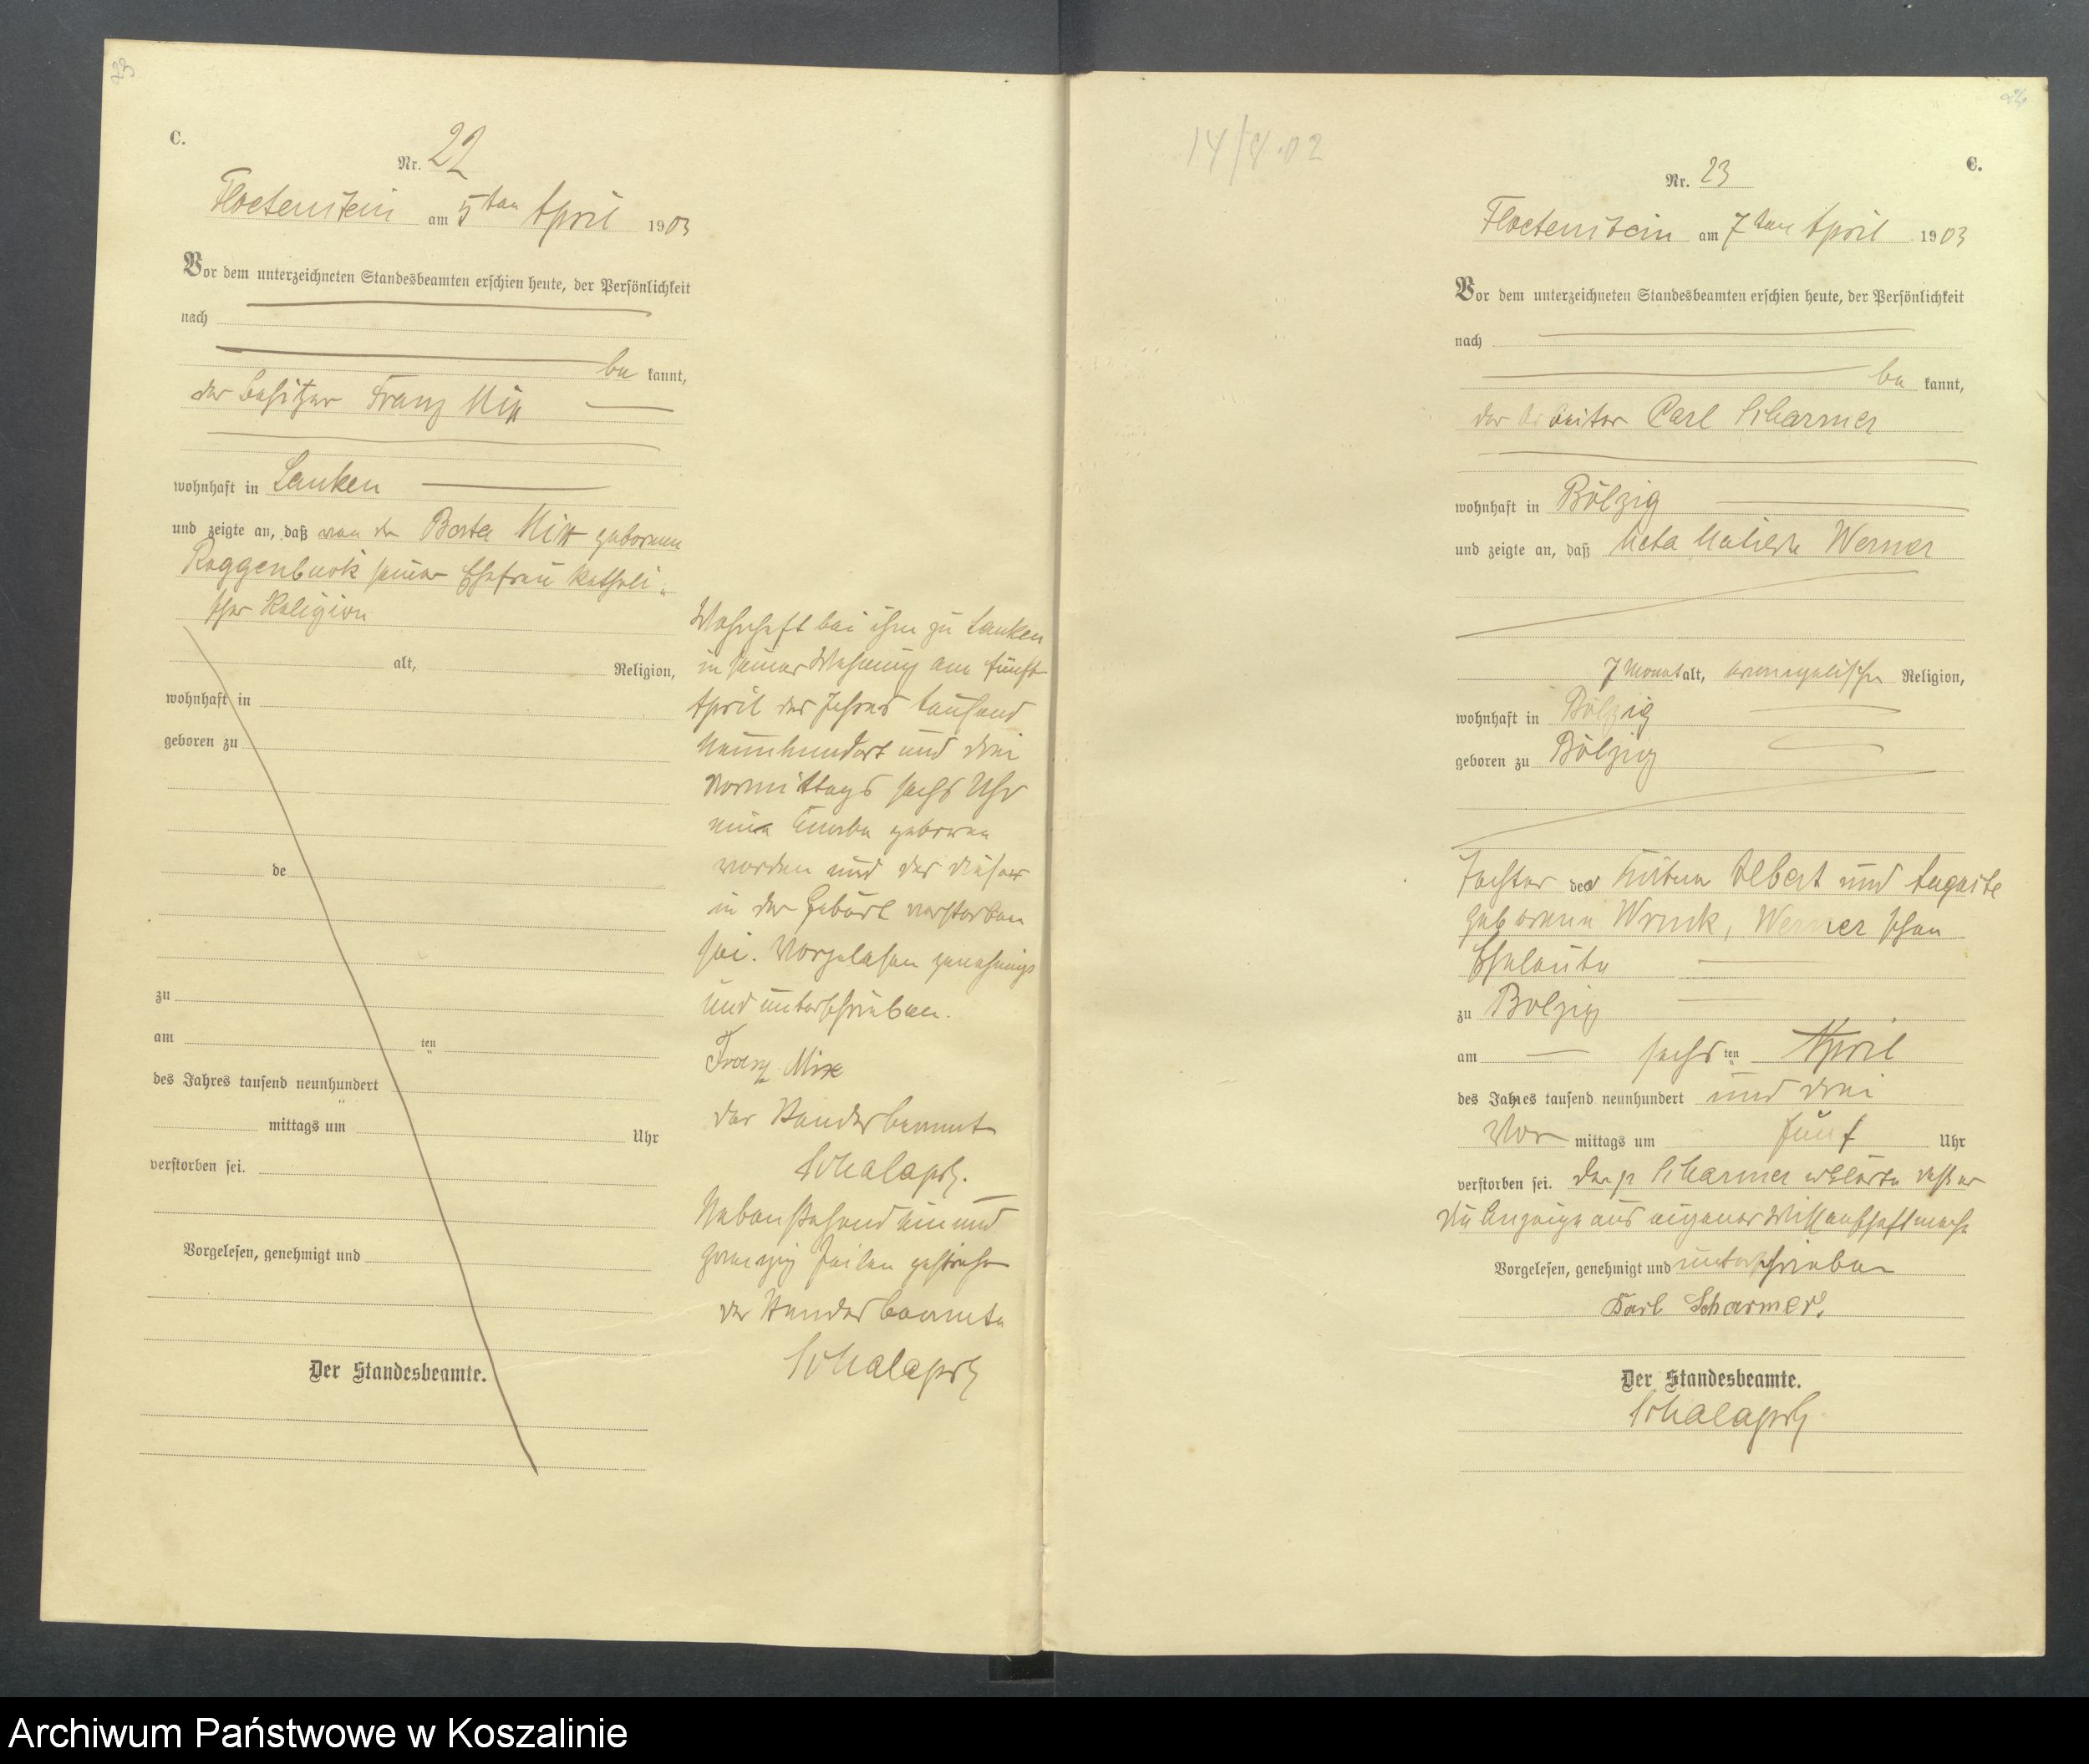 C.
Nr. 22
Floetenstein am 5ten April 1903
Vor dem unterzeichneten Standesbeamten erschien heute, der Persönlichkeit
nach
be kannt,
der Besitzer Franz Mix
wohnhaft in Lanken
und zeigte an, daß von der Berta Mix geborenen
Roggenbuck seiner Ehefrau katholi-
scher Religion
alt, Religion,
wohnhaft in
geboren zu
de
zu
am ten
des Jahres tausend neunhundert
mittags um Uhr
verstorben sei.
Vorgelesen, genehmigt und
Der Standesbeamte.
Wohnhaft bei ihm zu Lanken
in seiner Wohnung am fünften
April des Jahres tausend
neunhundert und drei
Vormittags sechs Uhr
ein Knabe geboren
worden und das dieser
in der Geburt verstorben
sei. Vorgelesen genehmigt
und unterschrieben.
Franz Mix
Der Standesbeamte
Schalapsky.
Nebenstehend ein und
zwanzig Zeilen gestrichen
Der Standesbeamte
Schalapsky
14/8.02
C.
Nr. 23
Floetenstein am 7ten April 1903
Vor dem unterzeichneten Standesbeamten erschien heute, der Persönlichkeit
nach
be kannt,
der Arbeiter Carl Scharmer
wohnhaft in Bölzig
und zeigte an, daß Meta Werner
7 Monat alt, evangelischer Religion,
wohnhaft in Bölzig
geboren zu Bölzig
Tochter der Albert und Auguste
geborene Wruck, Werner schen
Eheleute
zu Bölzig
am sechs ten April
des Jahres tausend neunhundert und drei
Vor mittags um fünf Uhr
verstorben sei. Der p Scharmer erklärte daß er
die Anzeige aus eigener Wissenschaft mache
Vorgelesen, genehmigt und unterschrieben
Karl Scharmer.
Der Standesbeamte.
Schalapsky
Archiwum Państwowe w Koszalinie